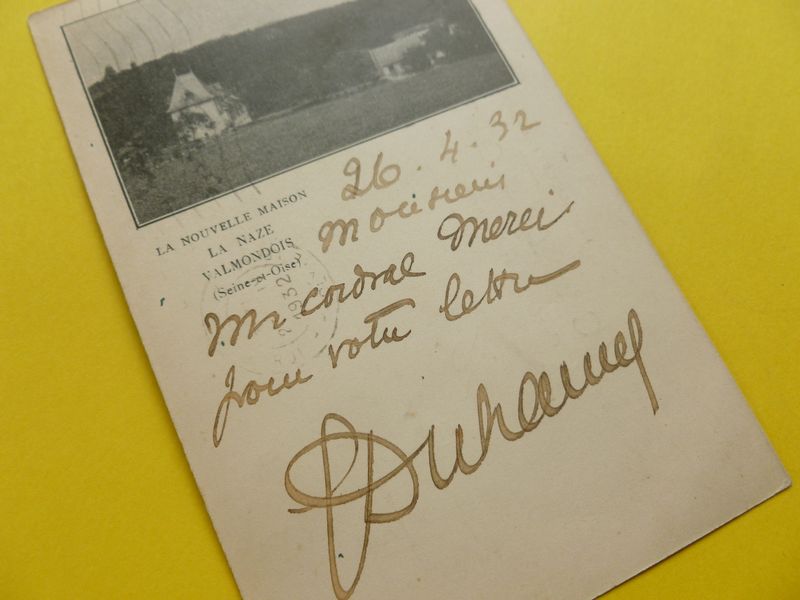 LA NOUVELLE MAISON
LA NAZE
VALMONDOIS
(Seine-et-Oise)
26.4.32
Monsieur
Un cordial Merci
pour votre lettre
Duhamel
1932